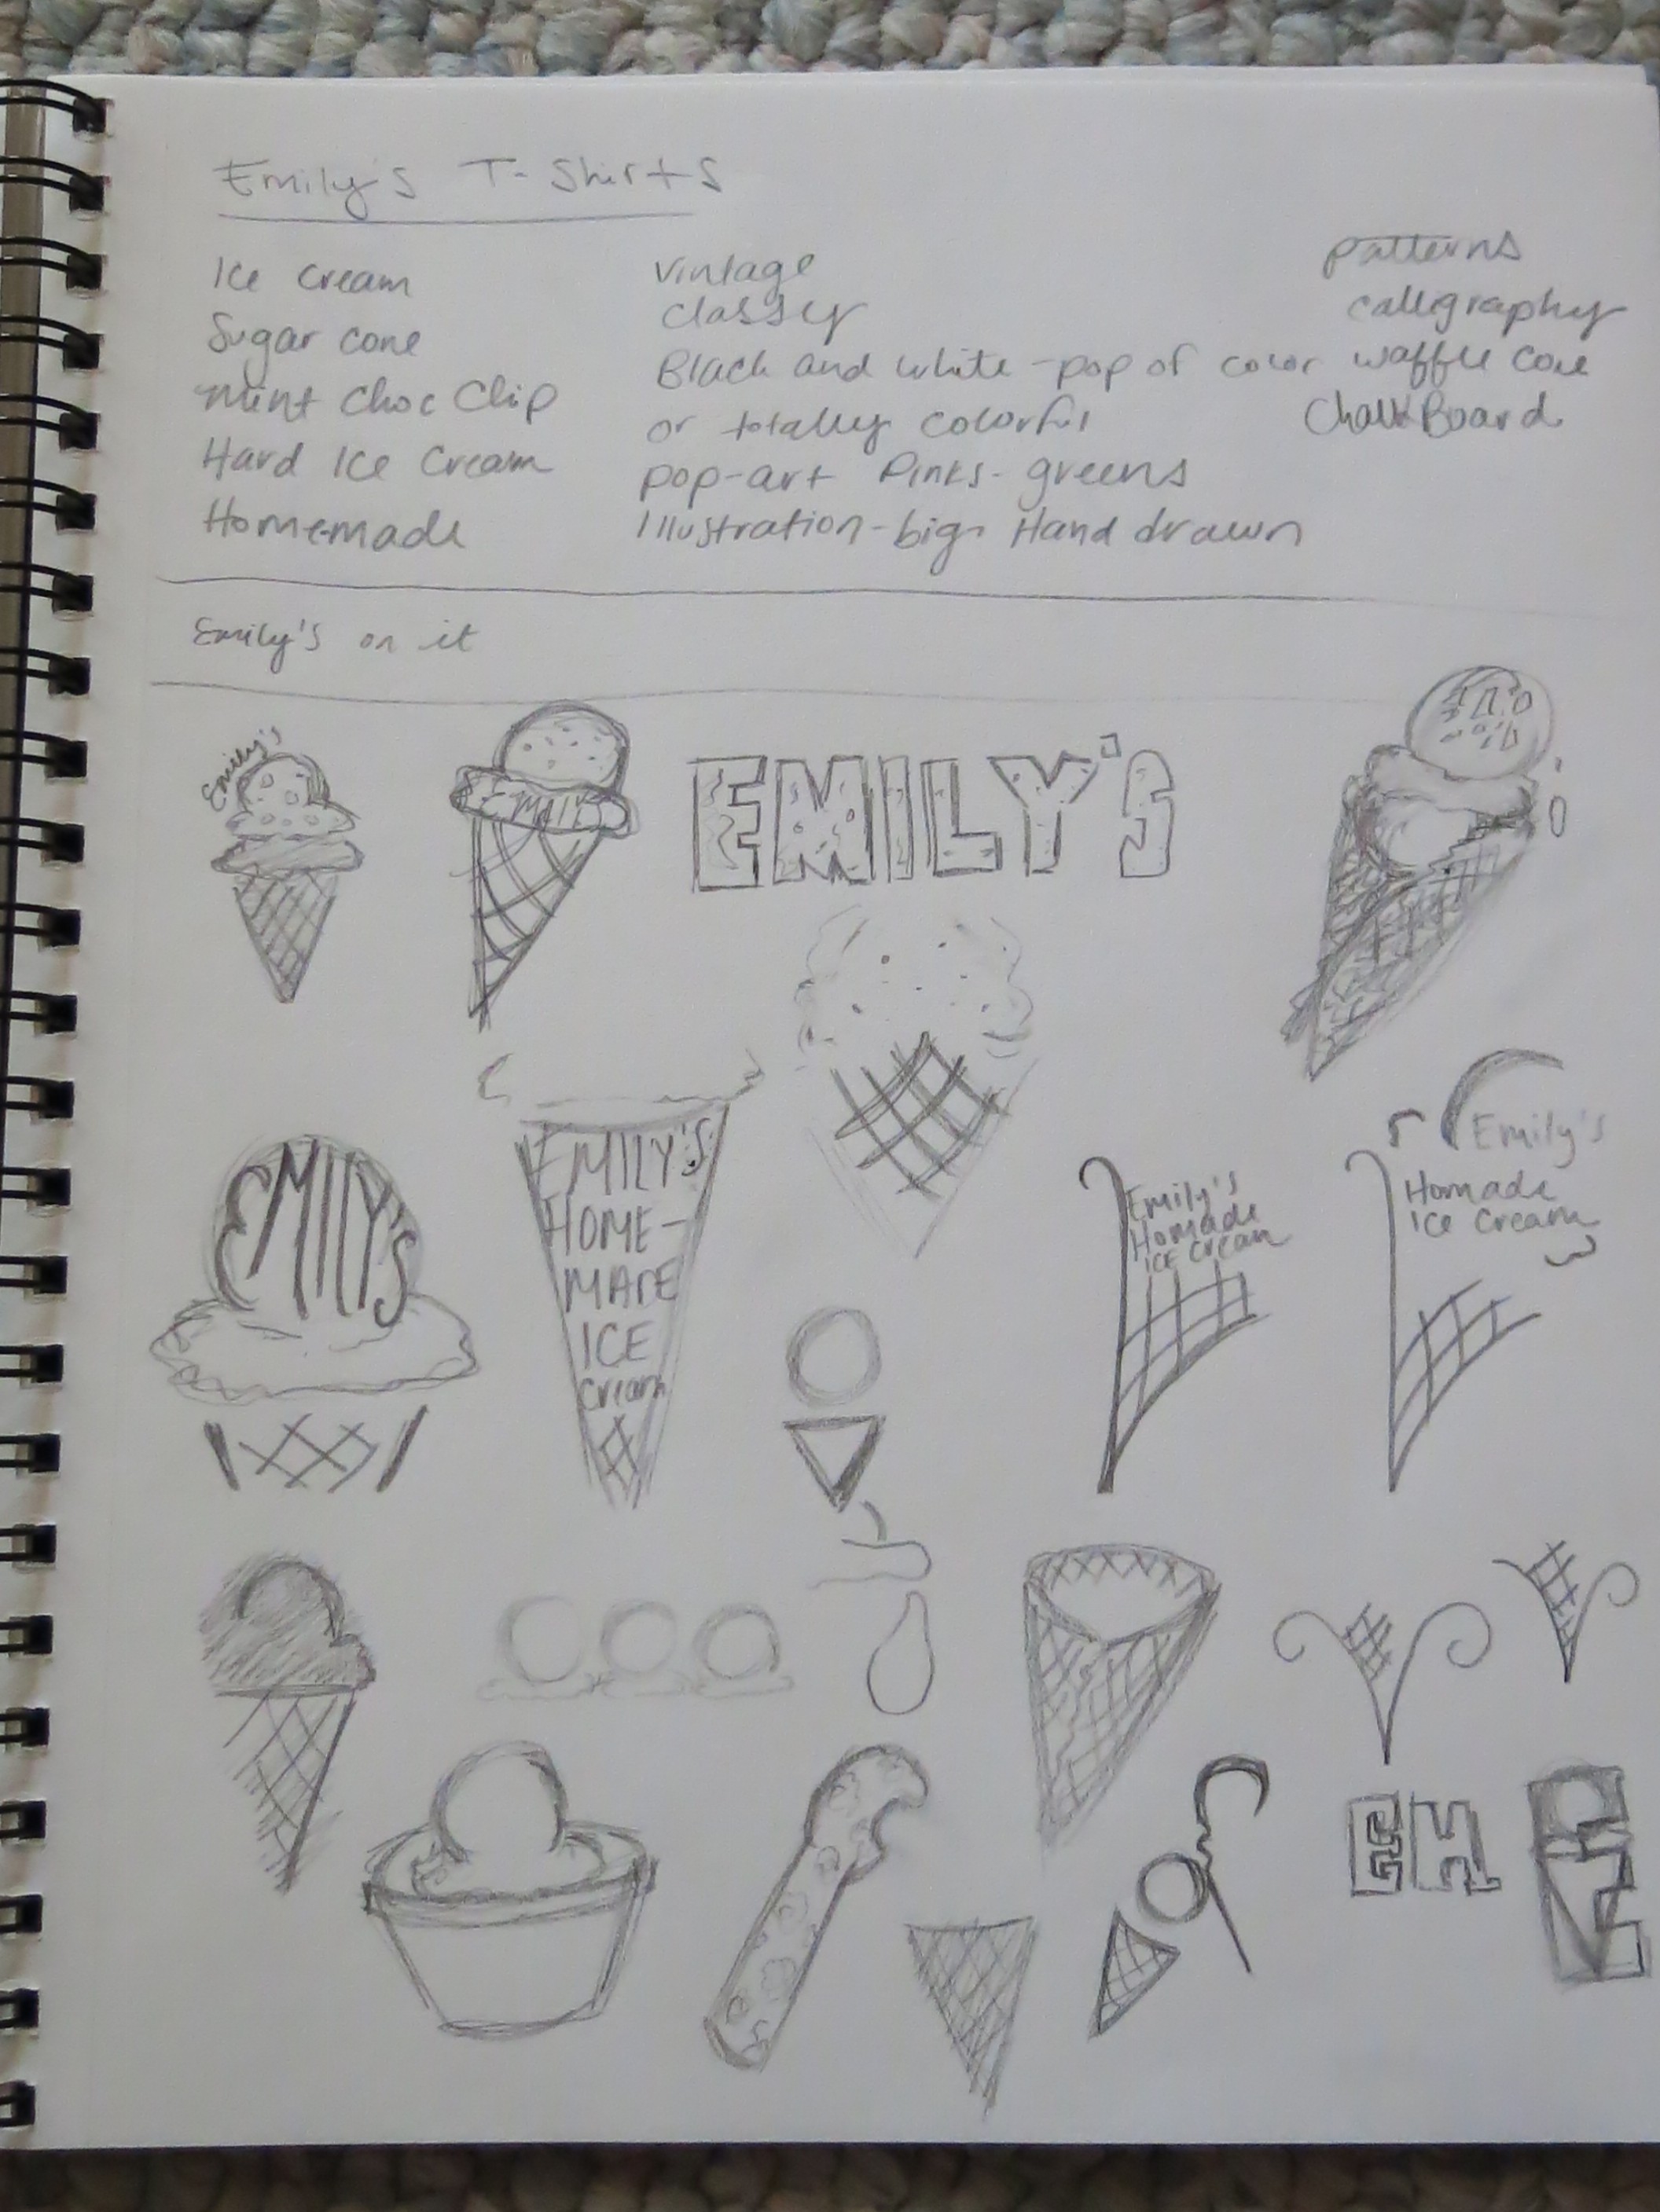 Emily's T-Shirts
Ice Cream
Sugar cone
mint Choc Chip
Hard Ice Cream
Homemade
vintage
classy
Black and white - pop of color
or totally colorful
pop-art Pinks - greens
Illustration - big Hand drawn
patterns
calligraphy
waffle cone
ChalkBoard
Emily's on it
Emily's
EMILY
EMILY'S
EMILY'S
EMILY'S
HOME-
MADE
ICE
Cream
Emily's
Homade
ICE Cream
Emily's
Homade
Ice Cream
EH
E